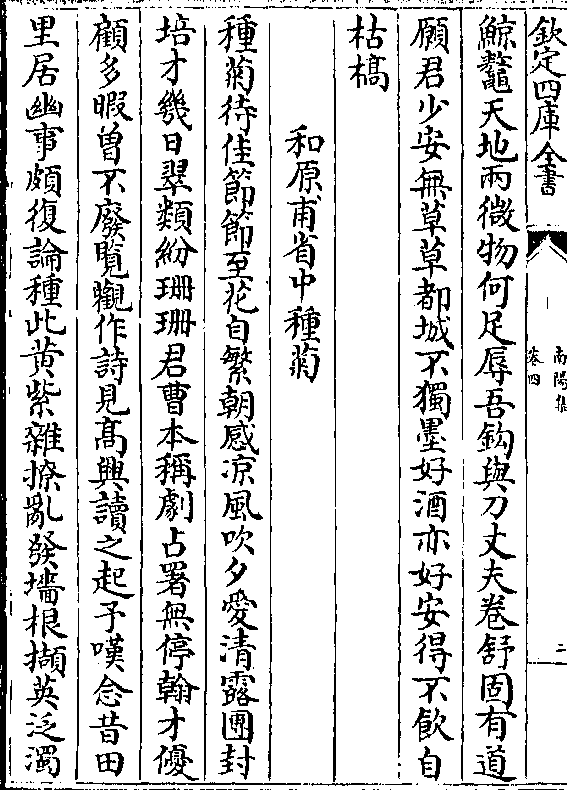 欽定四庫全書
南陽集
卷四
二
鯨鼇天地兩微物何足辱吾鈎與刀丈夫卷舒固有道
願君少安無草草都城不獨墨好酒亦好安得不飲自
枯槁
和原甫省中種菊
種菊待佳節節至花自繁朝感涼風吹夕愛清露團封
培才幾日翠類紛珊珊君曹本稱劇占署無停翰才優
顧多暇曾不廢覧觀作詩見髙興讀之起予嘆念昔田
里居幽事頗復論種此黄紫雜撩亂發墻根擷英泛濁